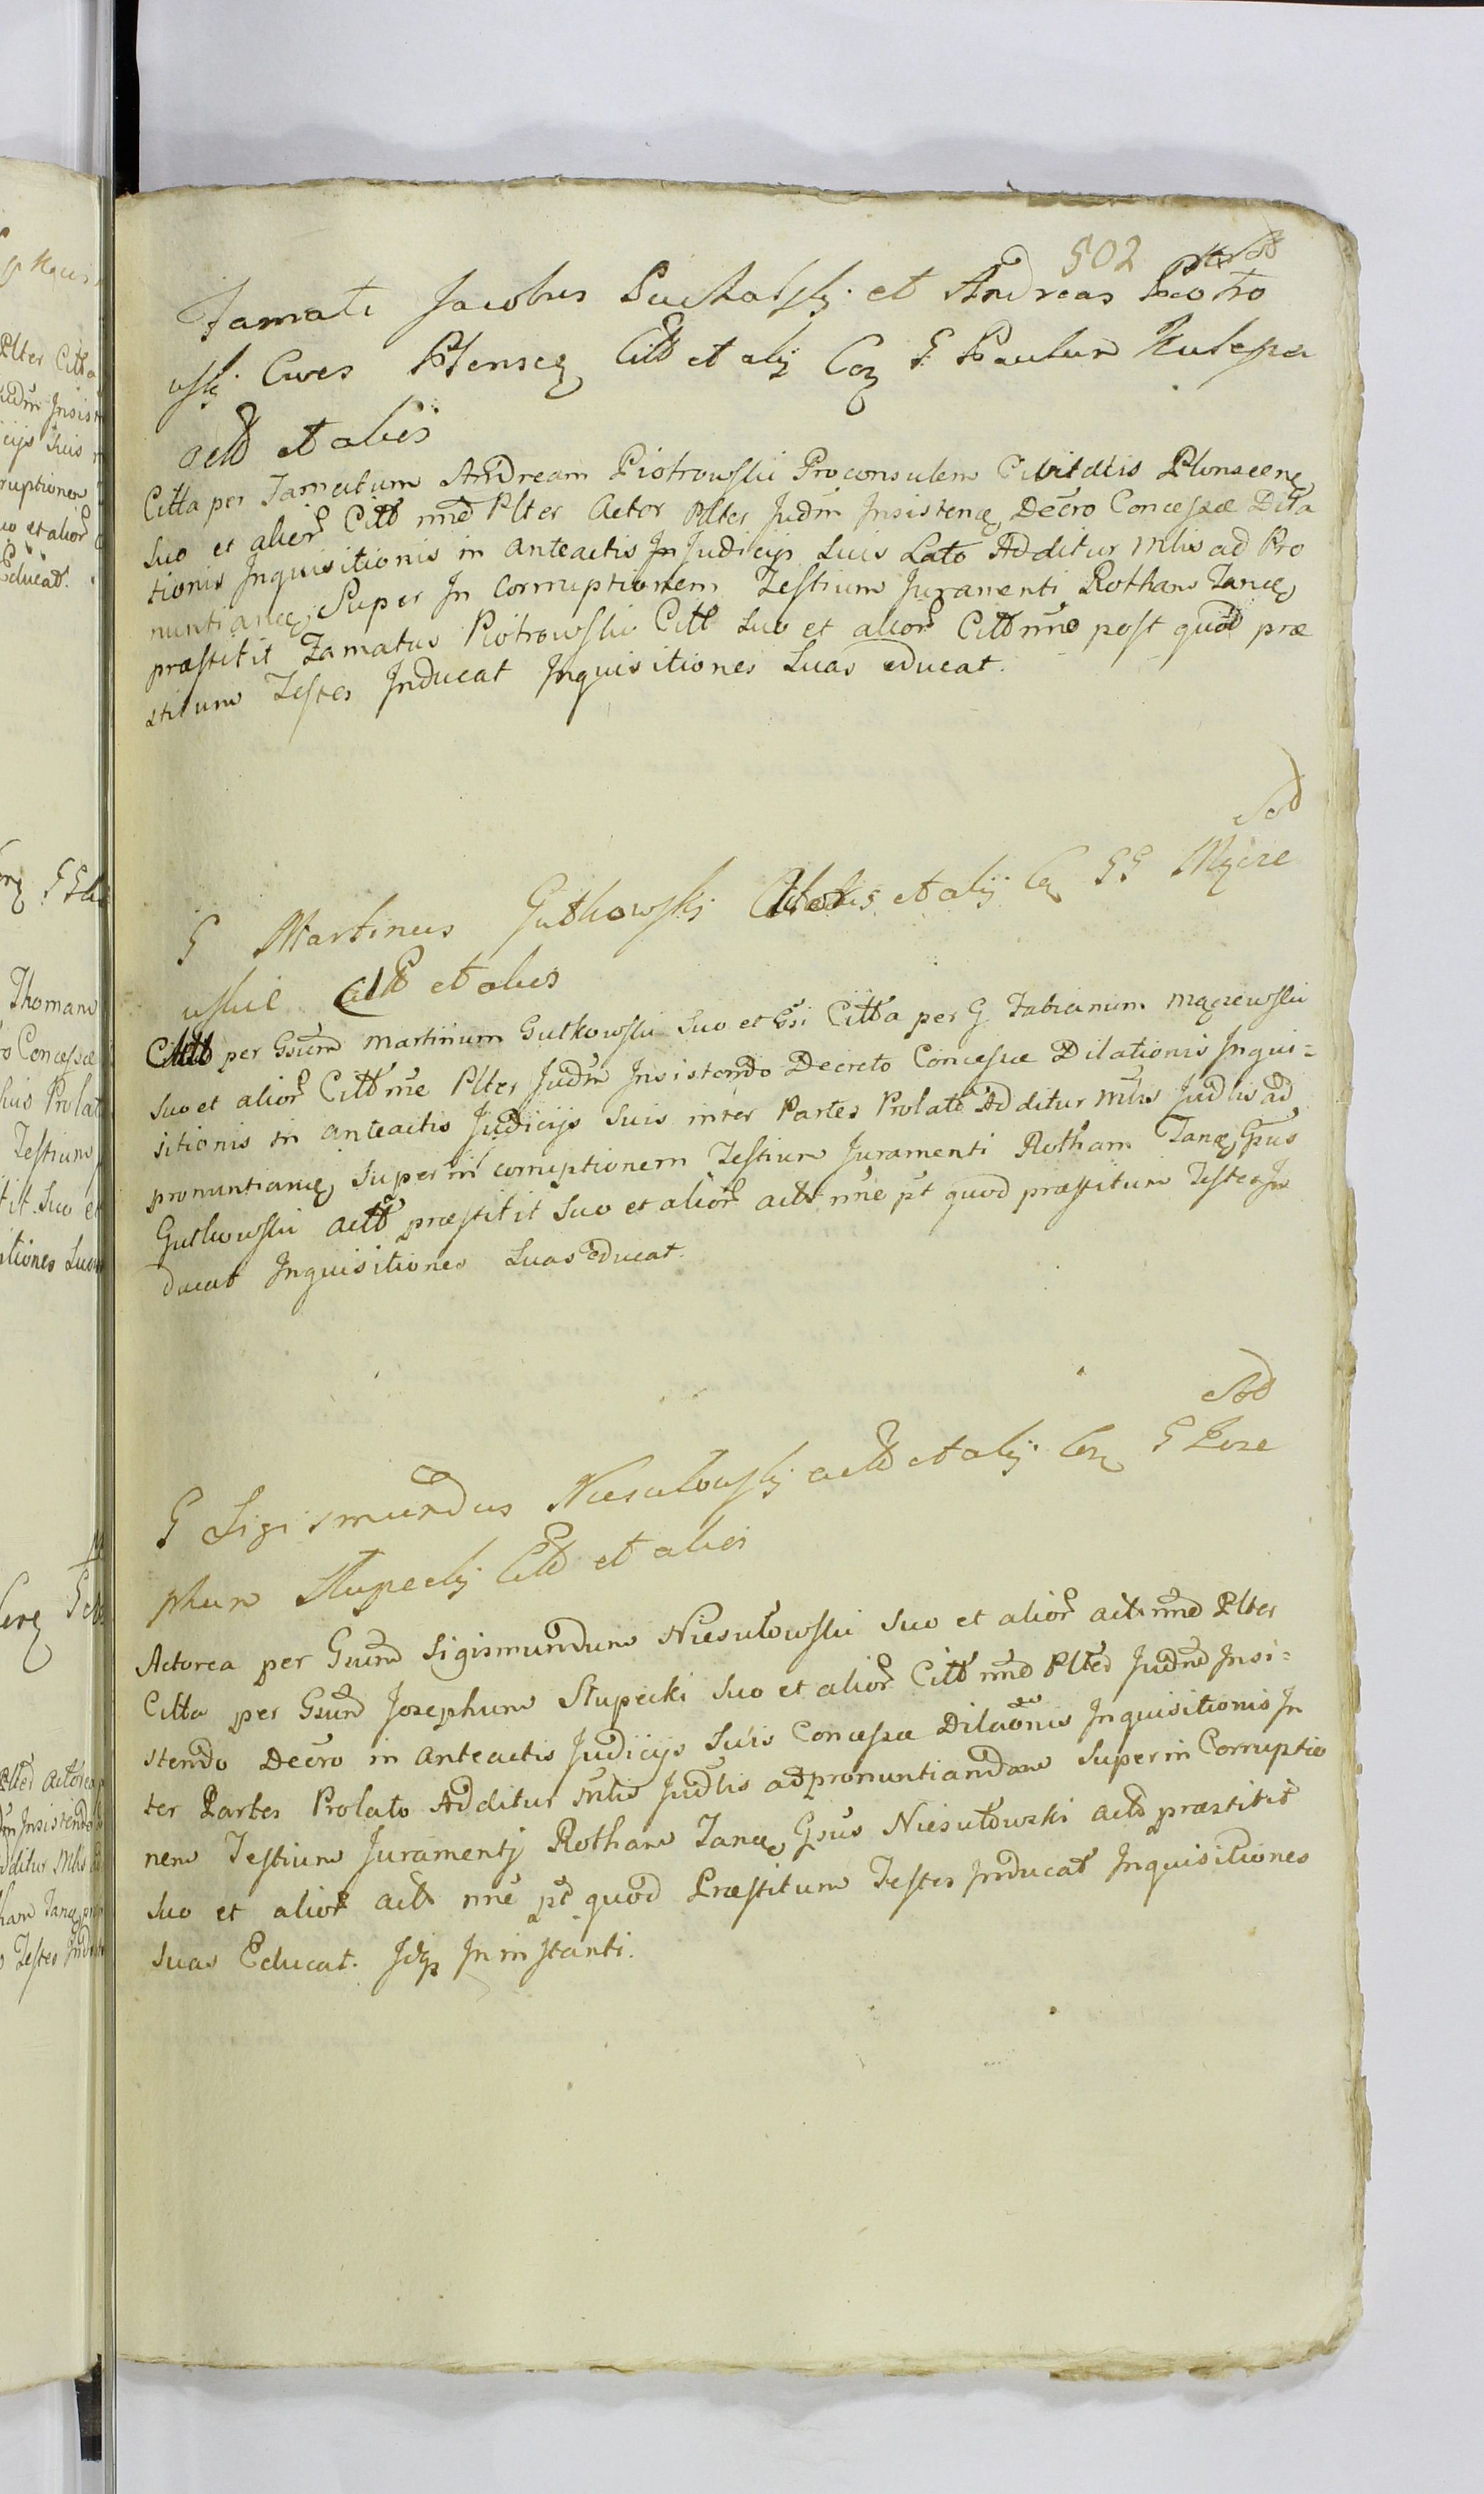 502
Famati Jacobus Suchalski et Andreas Piotro
wski Cives Plensez Citt et alij Coz G Paulum Kulesza
actt et alios
Citta per Famatum Andream Piotrowski Proconsulem Civitatis Plonscenz
suo et alior Citt nne Plter Actor Plter Judm Insistenz Decro Concessæ Dila
tionis Inquisitionis in anteactis In Judicijs suis Lato Additur Mlis ad Pro
nuntianz Super In Corruptionem Testium Juramenti Rotham Tanz
præstitit Famatus Piotrowski Citt suo et alior Citt nne post quod præ
stitum Testes Inducat Inquisitiones suas educat.
Sod
G Martinus Gutkowski et alij Cz GG Mącze
wskie et alios
per Gsum Martinum Gutkowski suo et Gsi Citta per G Fabianum Mączewski
suo et alior Citt nne Plter Judm Insistendo Decreto Concessæ Dilationis Inqui=
sitionis in anteactis Judicijs suis inter Partes Prolato Additur Mlis Judlis ad
pronuntianz super in corruptionem Testium Juramenti Rotham Tanz Gsus
Gutkowski actt præstitit suo et alior actt nne pt quod præstitum Testes In
ducat Inquisitiones suas educat.
Sod
G Sigismundus Niesułowski actt et alij Coz G Jose
phum Słupecki Citt et alios
Actorea per Gsum Sigismundum Niesułowski suo et alior actt nne Plter
Citta per Gsum Josephum Słupecki suo et alior Citt nne Plter Judm Insi=
stendo Decro in anteactis Judicijs suis Concessæ Dilaonis Inquisitionis In
ter Partes Prolato Additur Mlis Judlis ad pronuntiandam super in Corruptio
nem Testium Juramentj Rotham Tanz Gsus Niesułowski actt præstitit
suo et alior actt nne pt quod Præstitum Testes Inducat Inquisitiones
suas Educat. Idqz In instanti.